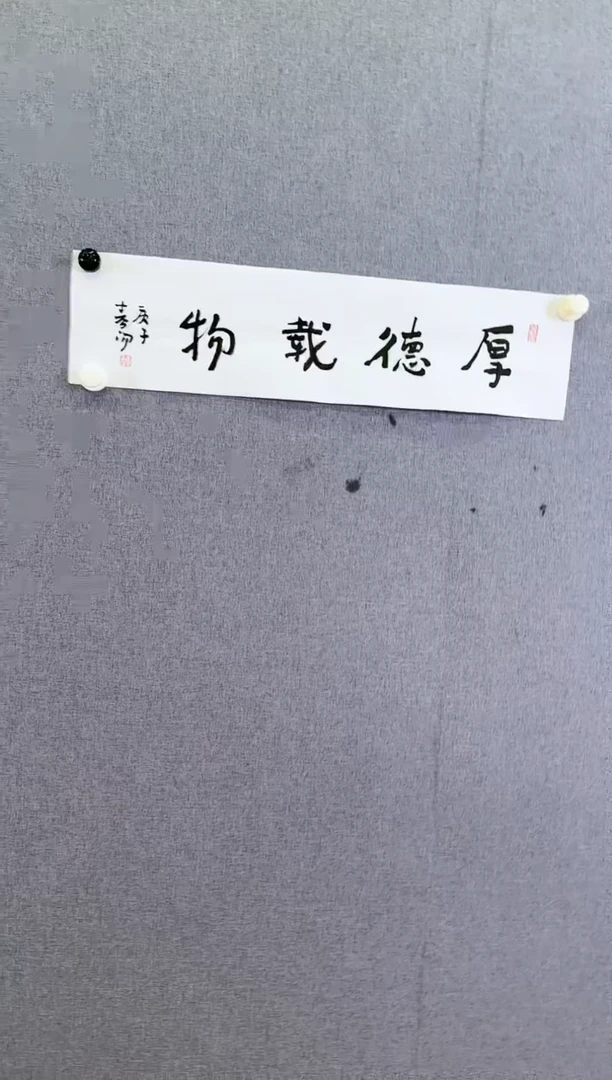 厚德载物
庚子